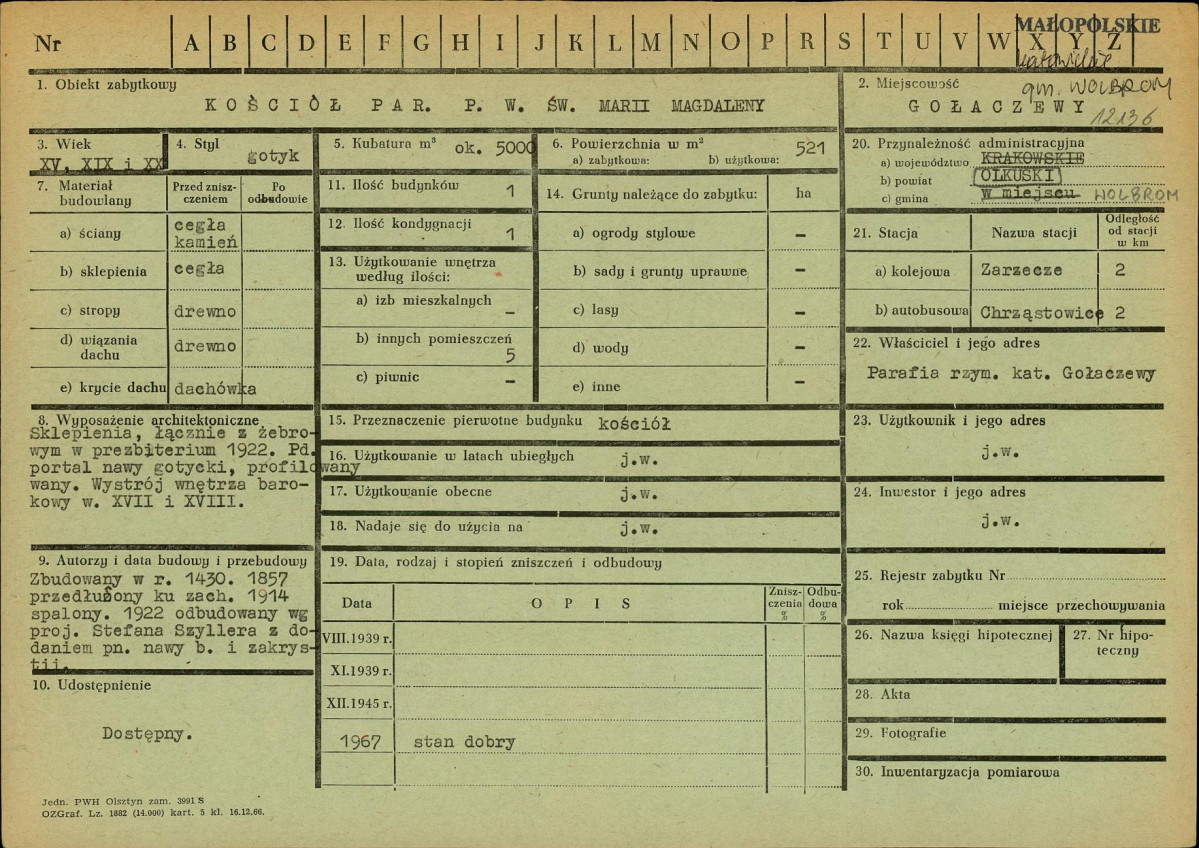 MAŁOPOLSKIE
Nr A B C D E F G H I J K L M N O P R S T U V W X Y Z
katowickie
1. Obiekt zabytkowy
KOŚCIÓŁ PAR. P. W. ŚW. MARII MAGDALENY
2. Miejscowość
gm. WOLBROM
GOŁACZEWY
12136
3. Wiek
XV, XIX i XX
4. Styl
gotyk
5. Kubatura m³ ok. 5000
6. Powierzchnia w m²
a) zabytkowa: b) użytkowa: 521
20. Przynależność administracyjna
a) województwo KRAKOWSKIE
b) powiat OLKUSKI
c) gmina w miejscu WOLBROM
7. Materiał budowlany
Przed zniszczeniem
Po odbudowie
a) ściany cegła kamień
b) sklepienia cegła
c) stropy drewno
d) wiązania dachu drewno
e) krycie dachu dachówka
11. Ilość budynków 1
12. Ilość kondygnacji 1
13. Użytkowanie wnętrza
według ilości:
a) izb mieszkalnych –
b) innych pomieszczeń 5
c) piwnic –
14. Grunty należące do zabytku: ha
a) ogrody stylowe –
b) sady i grunty uprawne –
c) lasy –
d) wody –
e) inne –
21. Stacja Nazwa stacji Odległość od stacji w km
a) kolejowa Zarzecze 2
b) autobusowa Chrząstowice 2
22. Właściciel i jego adres
Parafia rzym. kat. Gołaczewy
8. Wyposażenie architektoniczne
Sklepienia, łącznie z żebro-
wym w prezbiterium 1922. Pd.
portal nawy gotycki, profilowany
wany. Wystrój wnętrza baro-
kowy w. XVII i XVIII.
15. Przeznaczenie pierwotne budynku kościół
16. Użytkowanie w latach ubiegłych j.w.
17. Użytkowanie obecne j.w.
18. Nadaje się do użycia na j.w.
23. Użytkownik i jego adres
j.w.
24. Inwestor i jego adres
j.w.
9. Autorzy i data budowy i przebudowy
Zbudowany w r. 1430. 1857
przedłużony ku zach. 1914
spalony. 1922 odbudowany wg
proj. Stefana Szyllera z do-
daniem pn. nawy b. i zakrys-
tii.
10. Udostępnienie
Dostępny.
19. Data, rodzaj i stopień zniszczeń i odbudowy
Data OPIS Zniszczenia % Odbudowa %
VIII.1939 r.
XI.1939 r.
XII.1945 r.
1967 stan dobry
25. Rejestr zabytku Nr
rok miejsce przechowywania
26. Nazwa księgi hipotecznej
27. Nr hipo-
teczny
28. Akta
29. Fotografie
30. Inwentaryzacja pomiarowa
Jedn. PWH Olsztyn zam. 3991 S
OZGraf. Lz. 1882 (14.000) kart. 5 kl. 16.12.66.